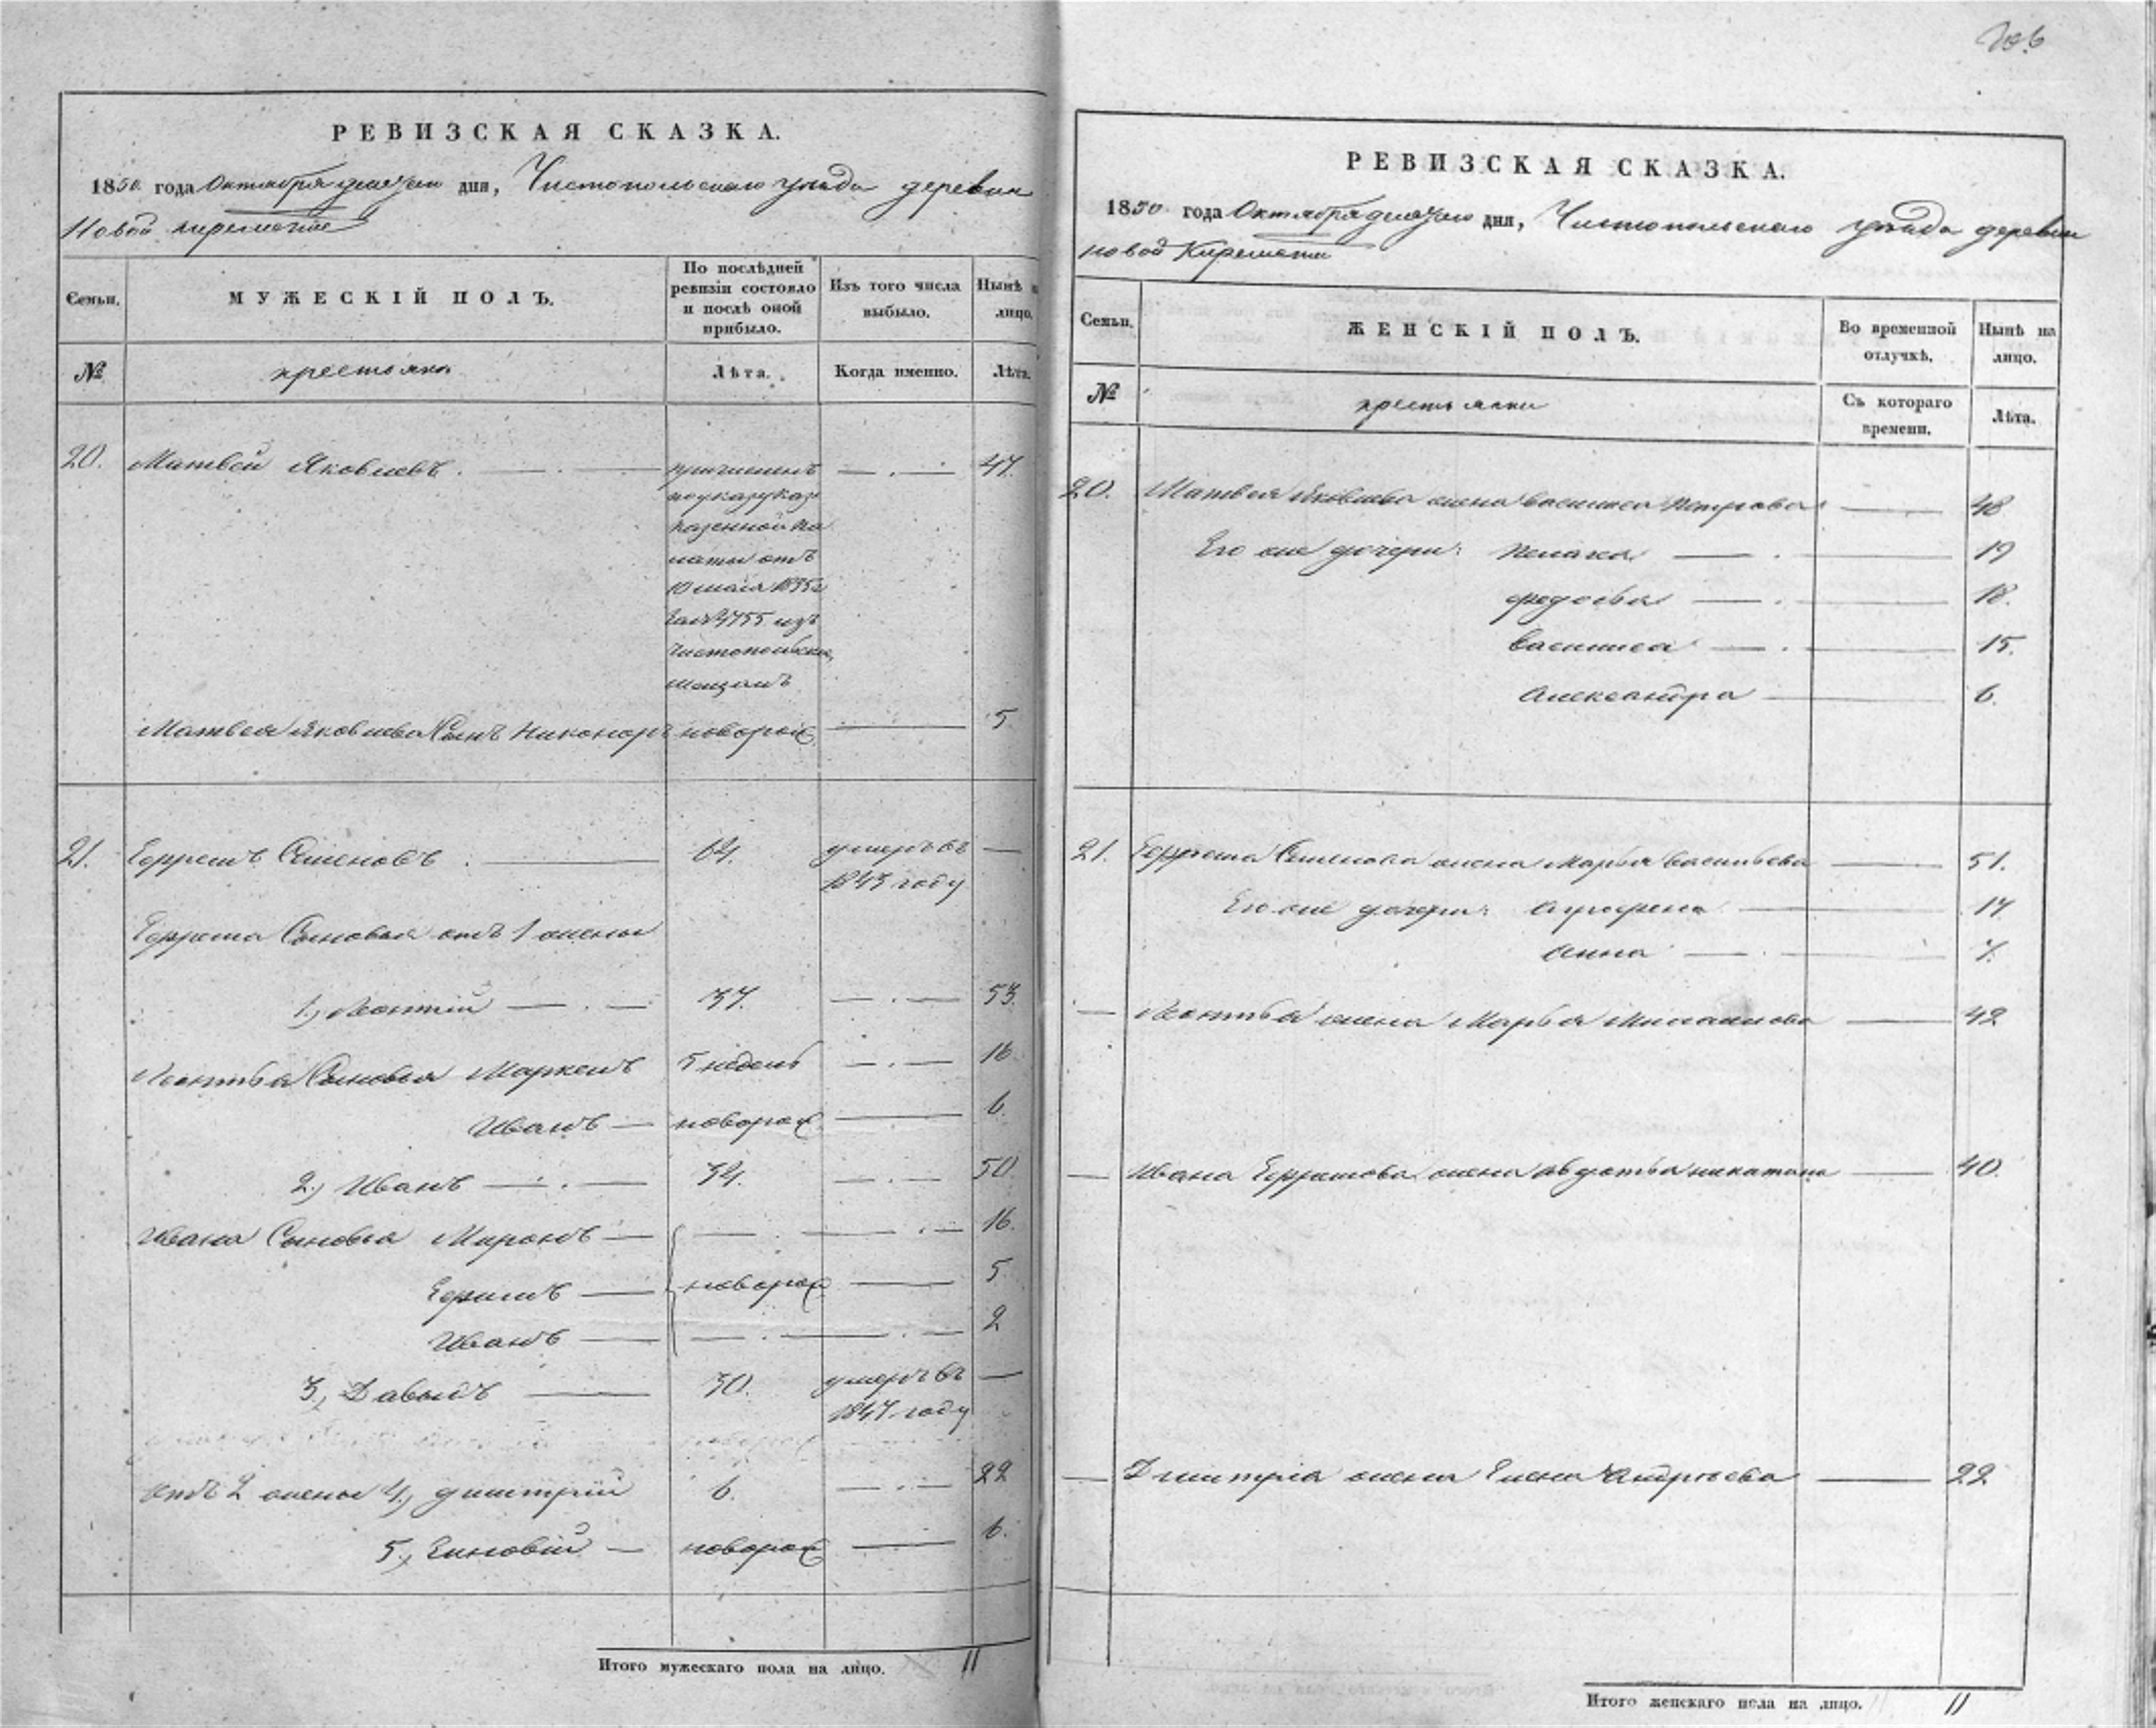 РЕВИЗСКАЯ СКАЗКА.
1850 года Октября дня, Чистопольскаго уѣзда деревни
Новой Киремети
Семьи.
МУЖЕСКІЙ ПОЛЪ.
По послѣдней ревизіи состояло и послѣ оной прибыло.
Изъ того числа выбыло.
Нынѣ на лицо.
№
крестьяне
Лѣта.
Когда именно.
Лѣта.
20. Матвей Яковлевъ. причисленъ 47.
по указу каз.
казенной па
латы отъ
10 мая 1835 г
за № 4755 изъ
Чистопольск.
мещанъ
Матвея Яковлева Сынъ Никоноръ новорож. 5
21. Ефремъ Семеновъ. 64. умеръ въ —
1843 году
Ефрема Сыновья отъ 1 жены
1., Леонтій 37. 53.
Леонтья Сыновья Маркелъ 5 недель 16
Иванъ новорож. 6
2., Иванъ 34. 50.
Ивана Сыновья Миронъ 16.
Ефимъ новорож. 5
Иванъ 2
3., Давыдъ 30. умеръ въ —
1847 году
отъ 2 жены 4., Дмитрій 6. 22
5., Зиновій новорож. 6.
Итого мужескаго пола на лицо. 11
РЕВИЗСКАЯ СКАЗКА.
1850 года Октября дня, Чистопольскаго уѣзда деревни
новой Киремети
Семьи.
ЖЕНСКІЙ ПОЛЪ.
Во временной отлучкѣ.
Нынѣ на лицо.
№
крестьянки
Съ котораго времени.
Лѣта.
20. Матвея Яковлева жена Василиса Петрова 48
Его же дочери: Пелагея 19
Федосья 18.
Василиса 15.
Александра 6.
21. Ефрема Семенова жена Марья Васильева 51.
Его же дочери: Аграфена 17
Анна 7.
Леонтья жена Марья Михайлова 42
Ивана Ефремова жена Авдотья Никитина 40.
Дмитрія жена Елена Андреева 22
Итого женскаго пола на лицо. 11